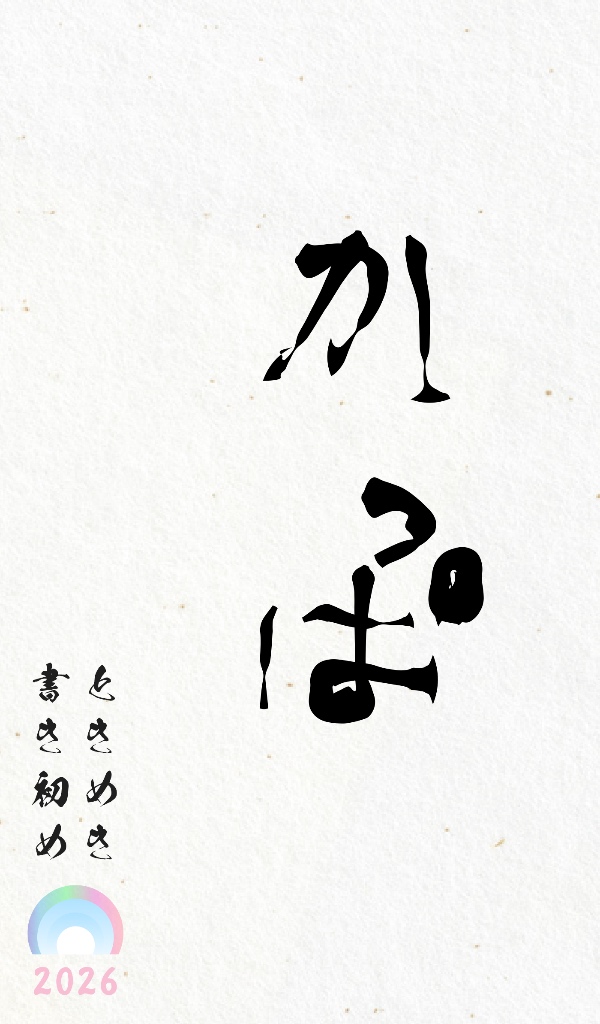 かっぱ
ときめき
書き初め
2026